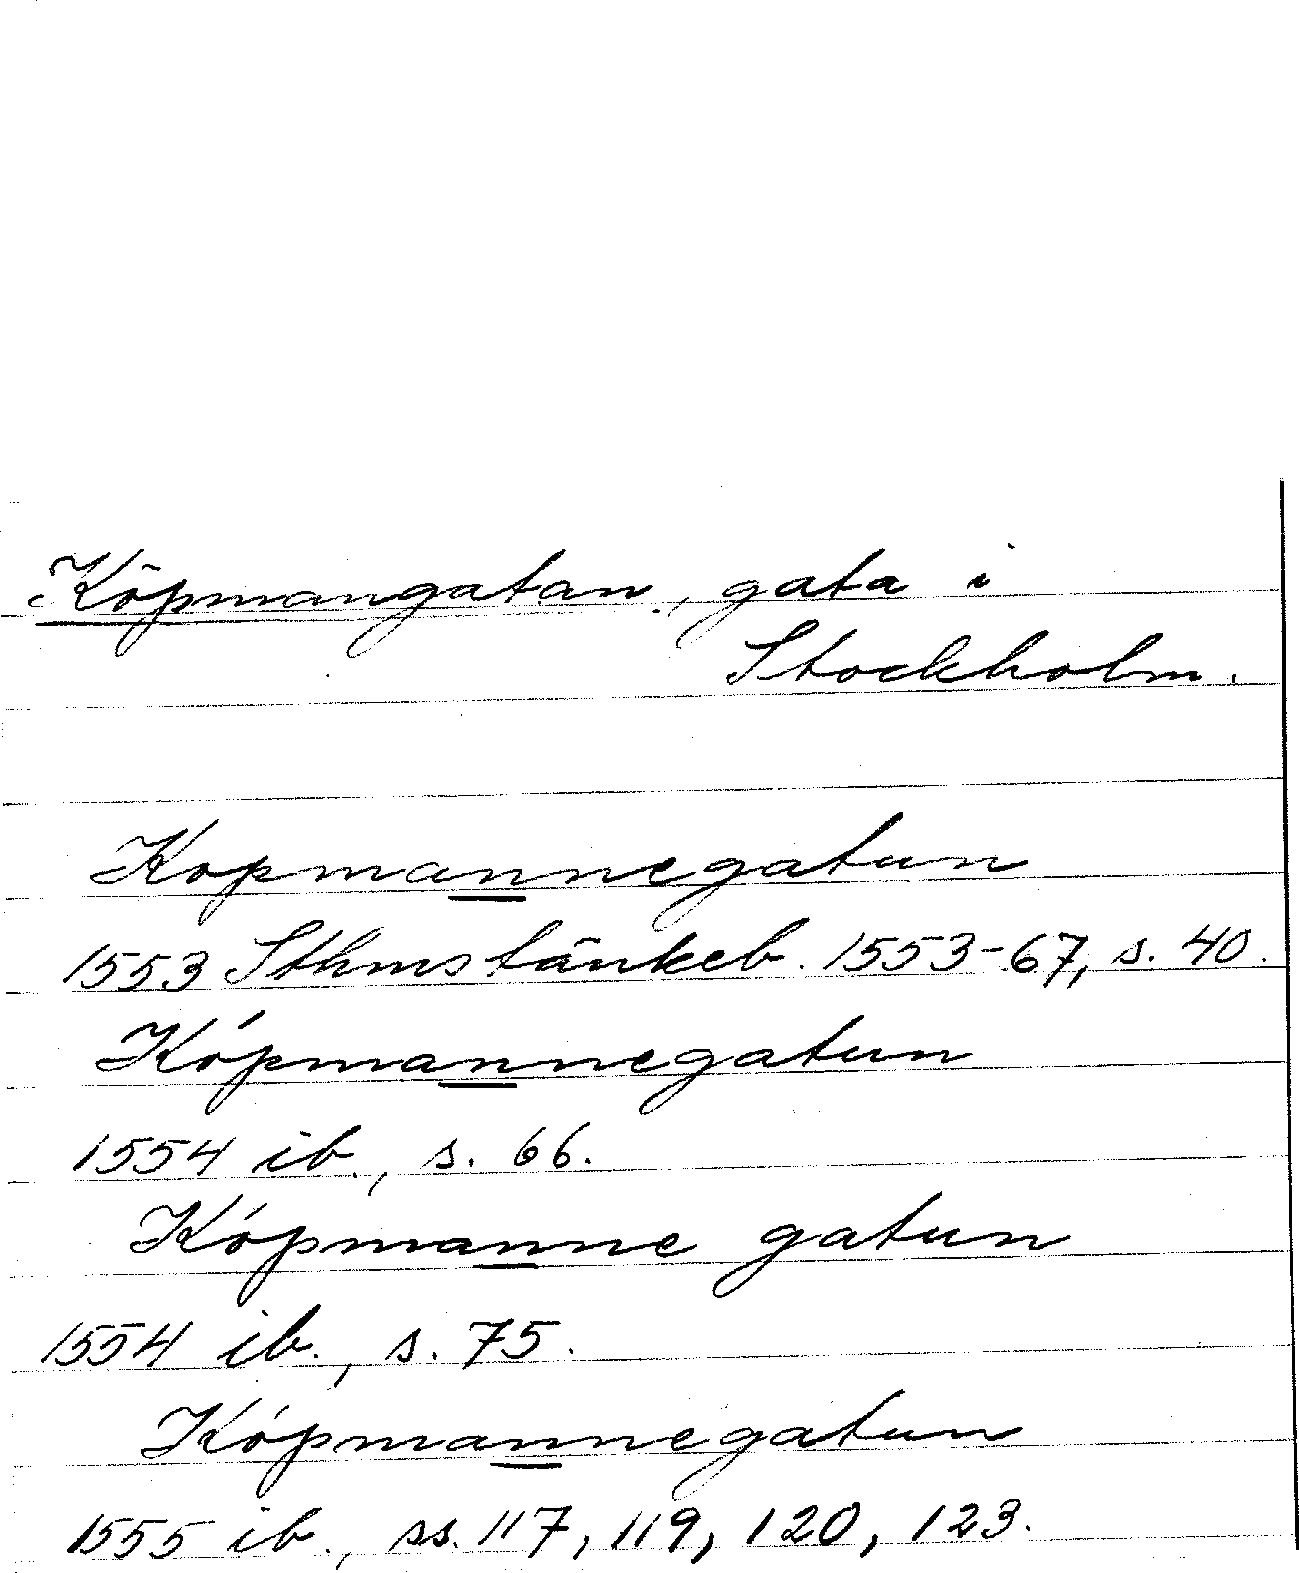 Köpmangatan, gata i
Stockholm.
Kopmannegatun
1553 Sthmstänkeb. 1553-67, s. 40.
Kópmannegatun
1554 ib., s. 66.
Kópmanne gatun
1554 ib., s. 75.
Kópmannegatun
1555 ib., ss. 117, 119, 120, 123.